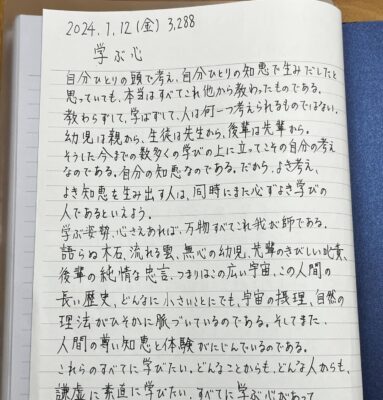 2024.7.12(金) 3,288
学ぶ心
自分ひとりの頭で考え、自分ひとりの知恵で生みだしたと
思っていても、本当はすべてこれ他から教わったものである。
教わらずして、学ばずして、人は何一つ考えられるものではない。
幼児は親から、生徒は先生から、後輩は先輩から。
そうした今までの数多くの学びの上に立ってこその自分の考え
なのである。自分の知恵なのである。だから、よき考え、
よき知恵を生み出す人は、同時にまた必ずよき学びの
人であるといえよう。
学ぶ姿勢、心さえあれば、万物すべてこれ我が師である。
語らぬ木石、流れる雲、無心の幼児、先輩のきびしい叱責、
後輩の純情な忠言、つまりはこの広い宇宙、この人間の
長い歴史、どんなに小さいことにでも、宇宙の摂理、自然の
理法がひそかに脈づいているのである。そしてまた、
人間の尊い知恵と体験がにじんでいるのである。
これらのすべてに学びたい。どんなことからも、どんな人からも、
謙虚に素直に学びたい。すべてに学ぶ心があって